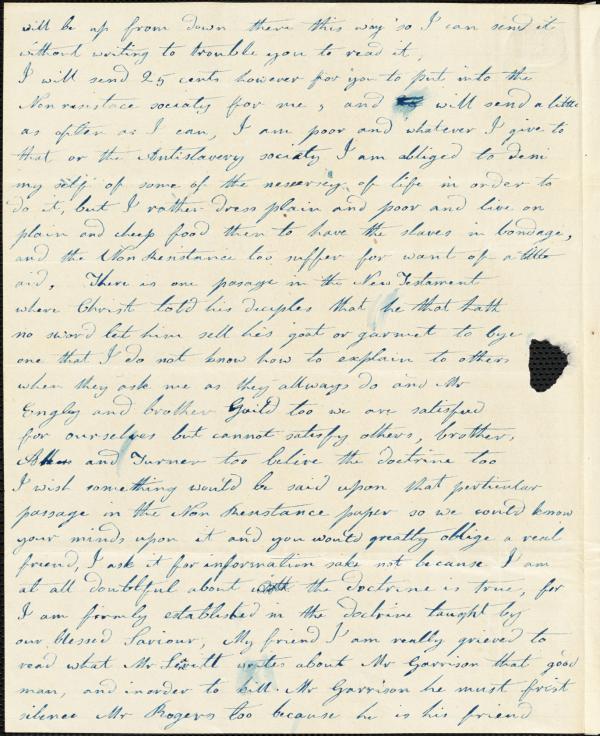 will be up from down there this way so I can send it
without writing to trouble you to read it,
I will send 25 cents however for you to put into the
Nonresistace society for me, and will send a little
as often as I can, I am poor and whatever I give to
that or the Antislavery society I am obliged to deni
my self of some of the nessersey of life in order to
do it, but I rather dress plain and poor and live on
plain and cheep food then to have the slaves in bondage,
and the Non Resistance too suffer for want of a little
aid, There is one pasage in the New Testament
where Christ told his deciples that he that hath
no sword let him sell his goat or garmet to bye
one that I do not know how to explain to others
when they ask me as they allways do and Mr
Engley and brother Guild too we are satisfied
for ourselves but cannot satisfy others, brother,
and Turner too belive the doctrine too
I wish something would be said upon that perticular
passage in the Non Resistance paper so we could know
your minds upon it and you would greatly oblige a real
friend, I ask it for information sake not because I am
at all doubtful about the doctrine is true, for
I am firmly established in the doctrine taught by
our blessed Saviour, My friend I am really grieved to
read what Mr writes about Mr Garrison that good
man, and inorder to kill Mr Garrison he must frist
silence Mr Rogers too because he is his friend